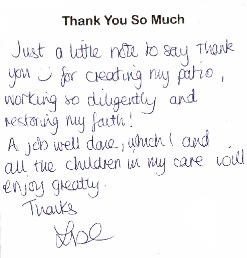 Thank You So Much
Just a little note to say Thank
you for creating my patio,
working so diligently and
restoring my faith!
A job well done, which I and
all the children in my care will
enjoy greatly.
Thanks